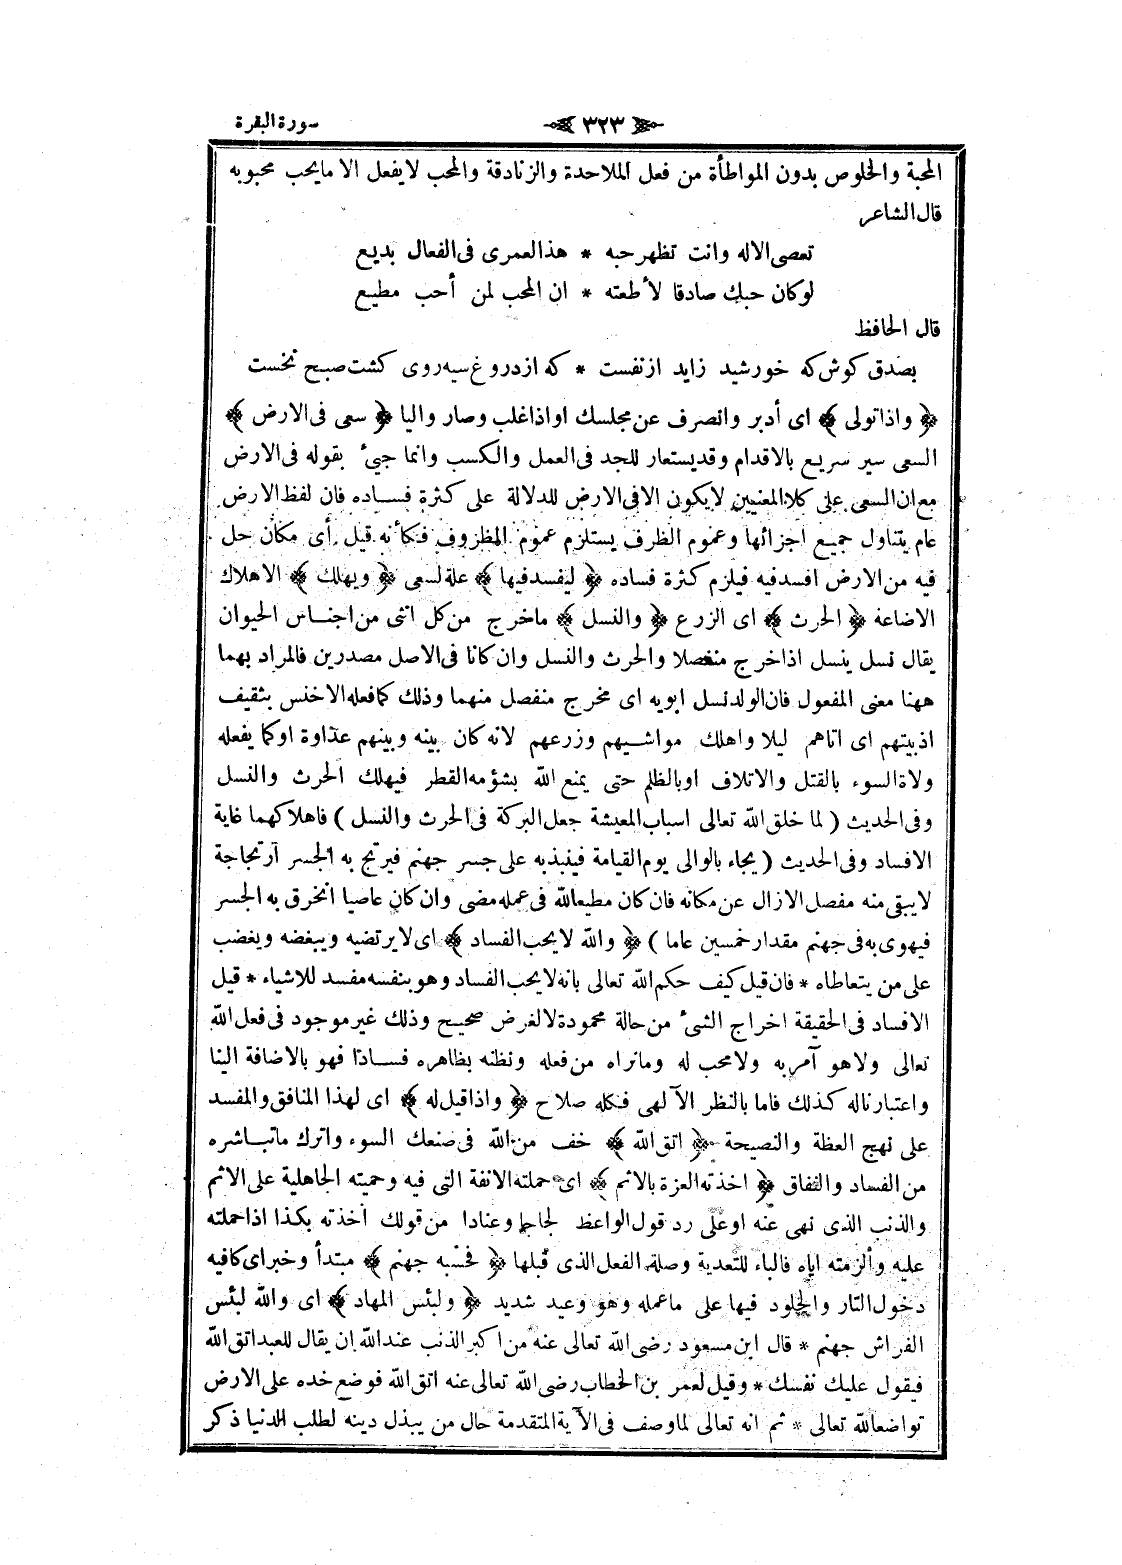 سورة البقرة
٣٢٣
المحبة والخلوص بدون المواطأة من فعل الملاحدة والزنادقة والمحب لايفعل الا مايحب محبوبه
قال الشاعر
تعصى الاله وانت تظهر حبه * هذا لعمرى فى الفعال بديع
لوكان حبك صادقا لأطعته * ان المحب لمن أحب مطيع
قال الحافظ
بصدق كوش كه خورشيد زايد از نفست * كه از دروغ سيه روى كشت صبح نخست
﴿ واذا تولى ﴾ اى أدبر وانصرف عن مجلسك او اذا غلب وصار واليا ﴿ سعى فى الارض ﴾
السعى سير سريع بالاقدام وقد يستعار للجد فى العمل والكسب وانما جيئ بقوله فى الارض
مع ان السعى على كلا المعنيين لايكون الا فى الارض للدلالة على كثرة فساده فان لفظ الارض
عام يتناول جميع اجزائها وعموم الظرف يستلزم عموم المظروف فكأنه قيل أى مكان حل
فيه من الارض افسد فيه فيلزم كثرة فساده ﴿ ليفسد فيها ﴾ علة لسعى ﴿ ويهلك ﴾ الاهلاك
الاضاعة ﴿ الحرث ﴾ اى الزرع ﴿ والنسل ﴾ ماخرج من كل انثى من اجناس الحيوان
يقال نسل ينسل اذا خرج منفصلا والحرث والنسل وان كانا فى الاصل مصدرين فالمراد بهما
ههنا معنى المفعول فان الولد نسل ابويه اى مخرج منفصل منهما وذلك كما فعله الاخنس بثقيف
اذ بيتهم اى اتاهم ليلا واهلك مواشيهم وزرعهم لانه كان بينه وبينهم عداوة او كما يفعله
ولاة السوء بالقتل والاتلاف او بالظلم حتى يمنع الله بشؤمه القطر فيهلك الحرث والنسل
وفى الحديث ( لما خلق الله تعالى اسباب المعيشة جعل البركة فى الحرث والنسل ) فاهلاكهما غاية
الافساد وفى الحديث ( يجاء بالوالى يوم القيامة فينبذ به على جسر جهنم فيرتج به الجسر ارتجاجة
لايبقى منه مفصل الا زال عن مكانه فان كان مطيعا لله فى عمله مضى وان كان عاصيا انخرق به الجسر
فيهوى به فى جهنم مقدار خمسين عاما ) ﴿ والله لايحب الفساد ﴾ اى لايرتضيه ويبغضه ويغضب
على من يتعاطاه * فان قيل كيف حكم الله تعالى بانه لايحب الفساد وهو بنفسه مفسد للاشياء * قيل
الافساد فى الحقيقة اخراج الشئ من حالة محمودة لا لغرض صحيح وذلك غير موجود فى فعل الله
تعالى ولا هو آمر به ولا محب له وما تراه من فعله ونظنه بظاهره فسادا فهو بالاضافة الينا
واعتبارنا له كذلك فاما بالنظر الآلهى فكله صلاح ﴿ واذا قيل له ﴾ اى لهذا المنافق والمفسد
على نهج العظة والنصيحة ﴿ اتق الله ﴾ خف من الله فى صنعك السوء واترك ماتباشره
من الفساد والنفاق ﴿ اخذته العزة بالاثم ﴾ اى حملته الانفة التى فيه وحميته الجاهلية على الاثم
والذنب الذى نهى عنه او على رد قول الواعظ لجاجا وعنادا من قولك أخذته بكذا اذا حملته
عليه وألزمته اياه فالباء للتعدية وصلة الفعل الذى قبلها ﴿ فحسبه جهنم ﴾ مبتدأ وخبر اى كافيه
دخول النار والخلود فيها على ماعمله وهو وعيد شديد ﴿ ولبئس المهاد ﴾ اى والله لبئس
الفراش جهنم * قال ابن مسعود رضى الله تعالى عنه من اكبر الذنب عند الله ان يقال للعبد اتق الله
فيقول عليك نفسك * وقيل لعمر بن الخطاب رضى الله تعالى عنه اتق الله فوضع خده على الارض
تواضعا لله تعالى * ثم انه تعالى لما وصف فى الآية المتقدمة حال من يبذل دينه لطلب الدنيا ذكر